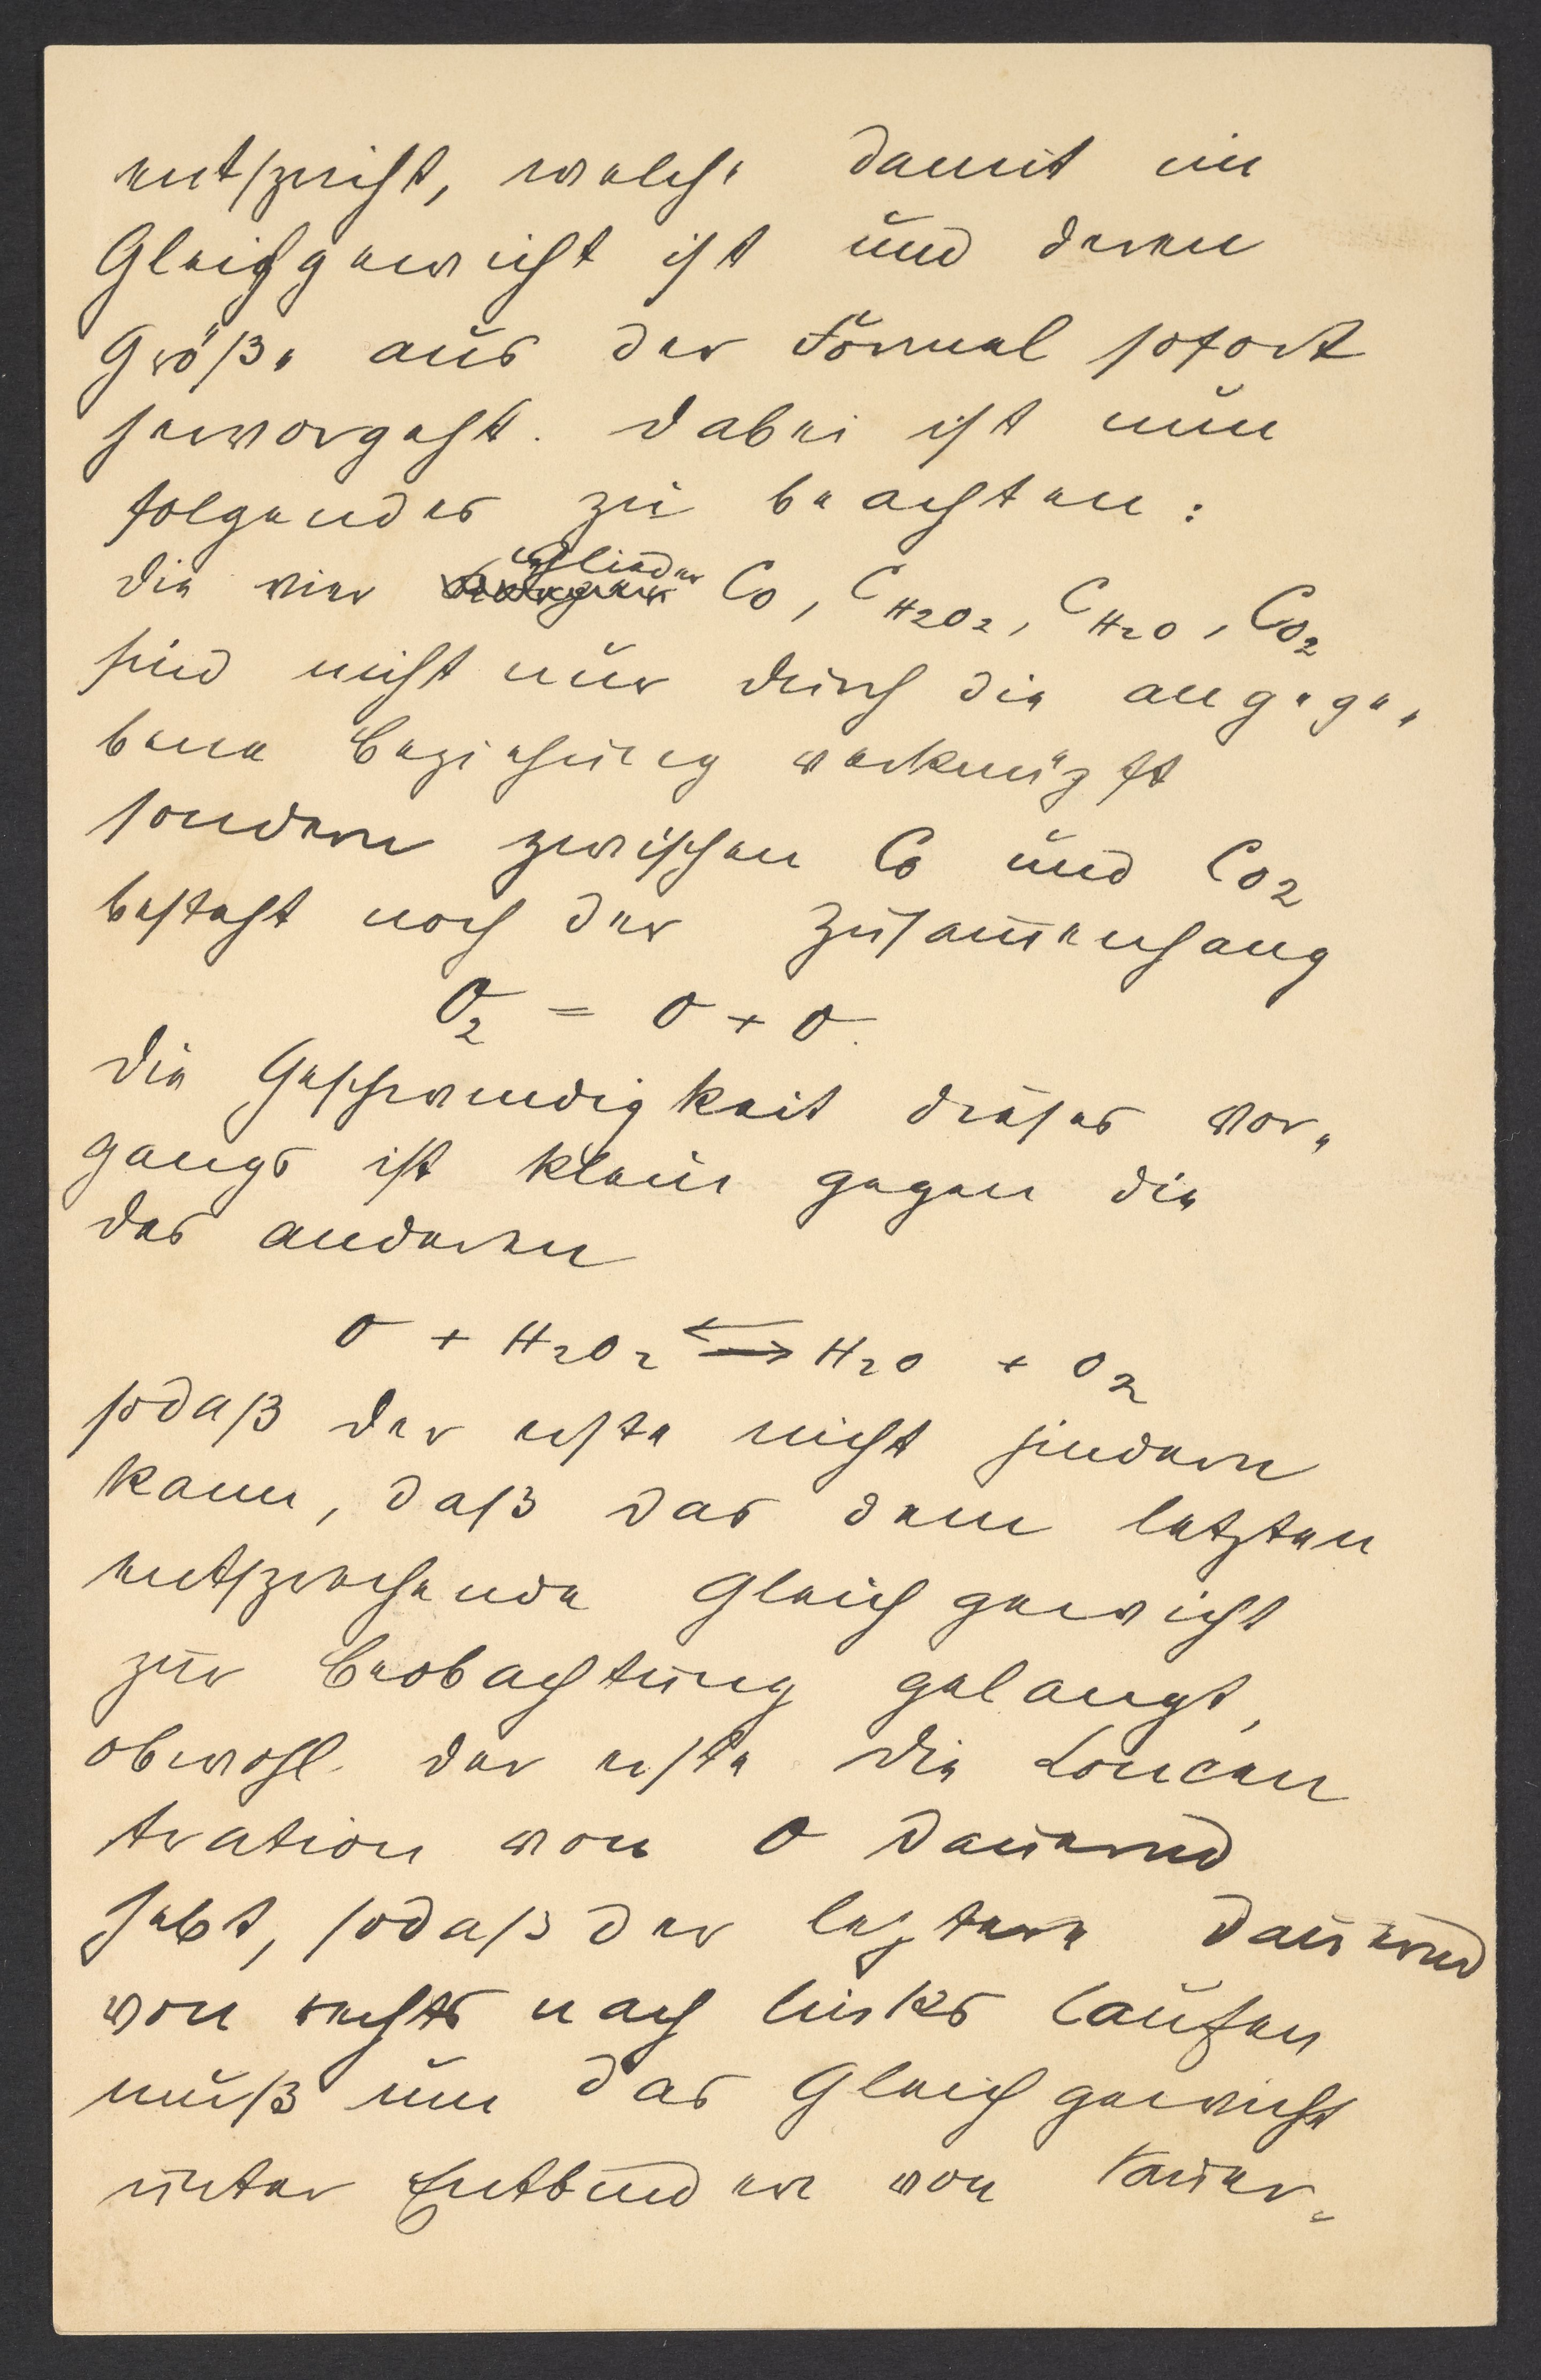 entspricht, welche damit im
Gleichgewicht ist und deren
Größe aus der Formel sofort
hervorgeht. Dabei ist nun
folgendes zu beachten:
Die vier Glieder C_O, C_H2O2, C_H2O, C_O2
sind nicht nur durch die angege-
bene Beziehung verknüpft
sondern zwischen C_O und C_O2
besteht noch der Zusammenhang
O2 = O + O.
Die Geschwindigkeit dieses Vor-
gangs ist klein gegen die
des anderen
O + H2O2 ⇄ H2O + O2
sodaß der erste nicht hindern
kann, daß das dem letzten
entsprechende Gleichgewicht
zur Beobachtung gelangt,
obwohl der erste die Concen
tration von O dauernd
hebt, sodaß der letztere dauernd
von rechts nach links laufen
muß um das Gleichgewicht
unter Entbinden von Sauer-